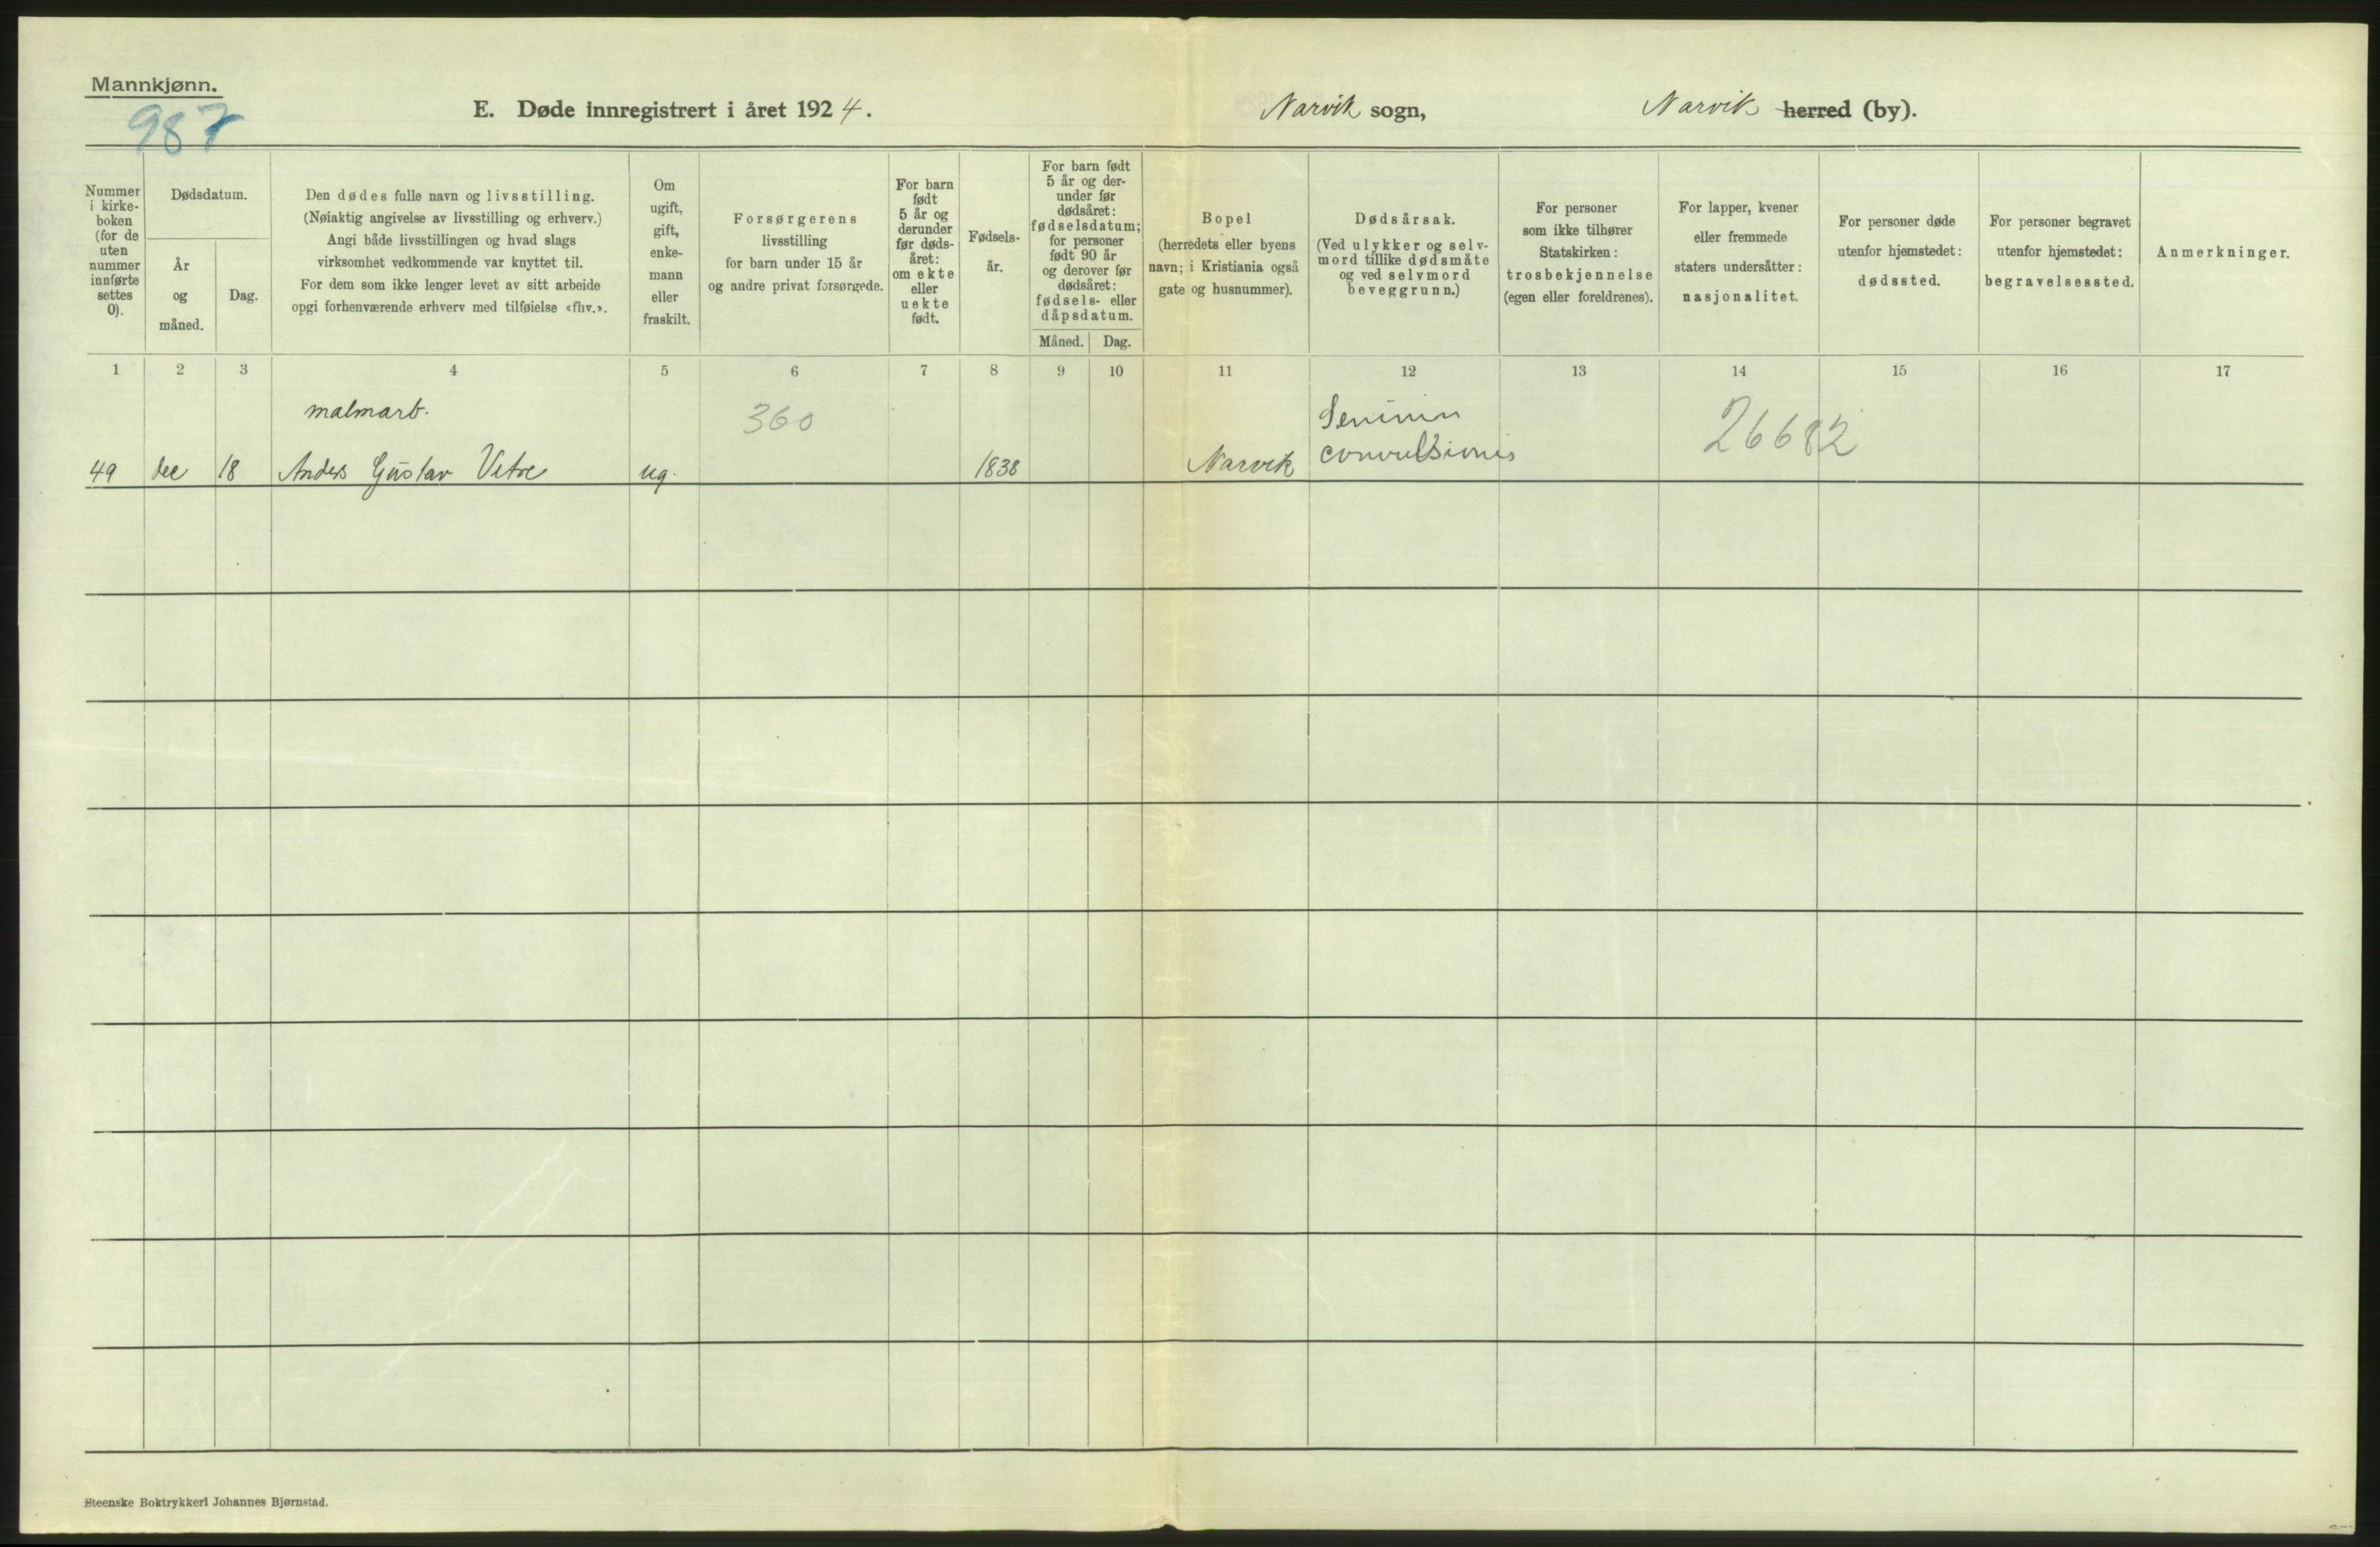 Mannkjønn.
987
E. Døde innregistrert i året 1924.
Narvik sogn,
Narvik herred (by).
Nummer
i kirke-
boken
(for de
uten
nummer
innførte
settes
0).
Dødsdatum.
År
og
måned.
Dag.
Den dødes fulle navn og livsstilling.
(Nøiaktig angivelse av livsstilling og erhverv.)
Angi både livsstillingen og hvad slags
virksomhet vedkommende var knyttet til.
For dem som ikke lenger levet av sitt arbeide
opgi forhenværende erhverv med tilføielse «fhv.».
Om
ugift,
gift,
enke-
mann
eller
fraskilt.
Forsørgerens
livsstilling
for barn under 15 år
og andre privat forsørgede.
For barn
født
5 år og
derunder
før døds-
året:
om ekte
eller
uekte
født.
Fødsels-
år.
For barn født
5 år og der-
under før
dødsåret:
fødselsdatum;
for personer
født 90 år
og derover før
dødsåret:
fødsels- eller
dåpsdatum.
Måned.
Dag.
Bopel
(herredets eller byens
navn; i Kristiania også
gate og husnummer).
Dødsårsak.
(Ved ulykker og selv-
mord tillike dødsmåte
og ved selvmord
beveggrunn.)
For personer
som ikke tilhører
Statskirken:
trosbekjennelse
(egen eller foreldrenes).
For lapper, kvener
eller fremmede
staters undersåtter:
nasjonalitet.
For personer døde
utenfor hjemstedet:
dødssted.
For personer begravet
utenfor hjemstedet:
begravelsessted.
Anmerkninger.
1 2 3 4 5 6 7 8 9 10 11 12 13 14 15 16 17
malmarb. 360 26682
49 dec 18 Anders Gustav Vetre ug. 1838 Narvik convulsionis
Steenske Boktrykkeri Johannes Bjørnstad.